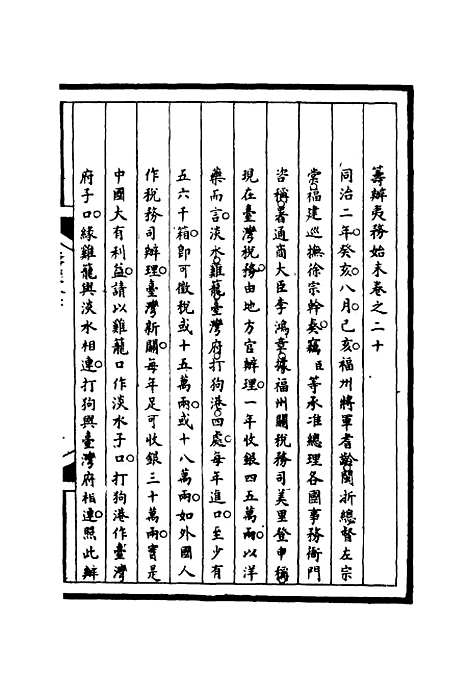 籌辦夷務始末卷之二十
同治二年癸亥八月己亥福州將軍耆齡閩浙總督左宗
棠福建巡撫徐宗幹奏竊臣等承准總理各國事務衙門
咨稱署通商大臣李鴻章據福州關稅務司美里登申稱
現在臺灣稅務由地方官辦理一年收銀四五萬兩以洋
藥而言淡水雞籠臺灣府打狗港四處每年進口至少有
五六千箱即可徵稅或十五萬兩或十八萬兩如外國人
作稅務司辦理臺灣新關每年足可收銀三十萬兩實是
中國大有利益請以雞籠口作淡水子口打狗港作臺灣
府子口緣雞籠與淡水相連打狗與臺灣府相連照此辦